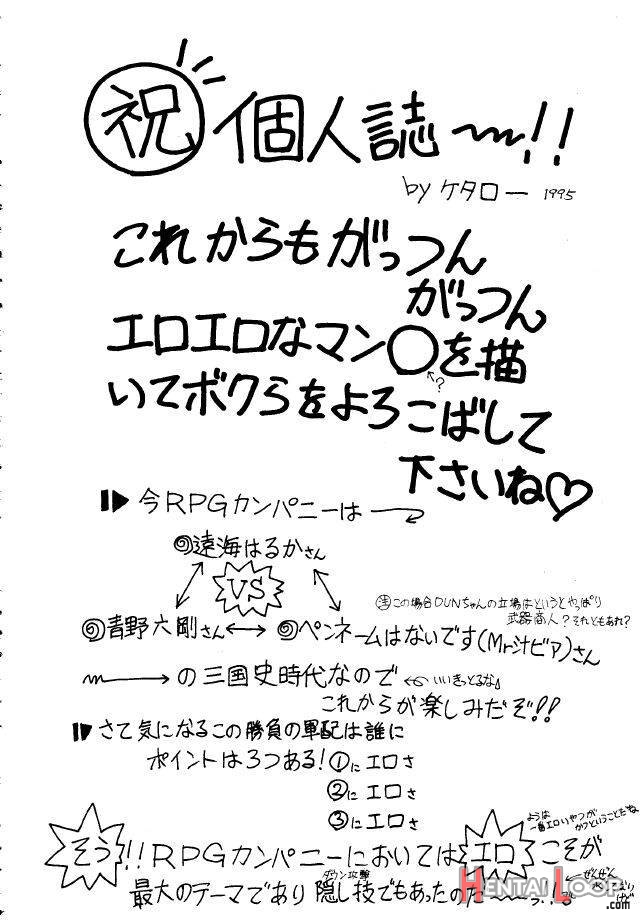 祝 個人誌〜!!
by ケタロー 1995
これからもがっつん
がっつん
エロエロなマン〇を描
?
いてボクらをよろこばして
下さいね♡
今RPGカンパニーは
遠海はるかさん
VS
青野六剛さん ↔ ペンネームはないです(Mr.汁ビア)さん
注この場合DUNちゃんの立場はというとやっぱり
武器商人?それともあれ?
の三国史時代なので
←いいきっとるなぁ
これからが楽しみだぞ!!
さて気になるこの勝負の軍配は誰に
ポイントは3つある!①にエロさ
②にエロさ
③にエロさ
ようは
一番エロいやつが
かつということだね
そう!!RPGカンパニーにおいてはエロこそが
ダウン攻撃
最大のテーマであり隠し技でもあったのだ〜っ!!
ぜんぜん
HENTAI LOOP
.COM